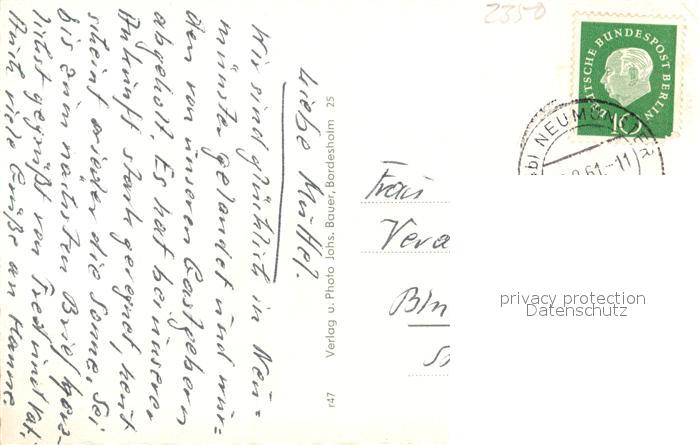 2350
DEUTSCHE BUNDESPOST BERLIN
10
NEUMÜNSTER
61.-11
Liebe Muttel.
Wir sind glücklich in Neu=
münster gelandet und wur=
den von unseren Gastgebern
abgeholt. Es hat bei unserer
Ankunft stark geregnet, heut
scheint wieder die Sonne. Sei
bis zum nächsten Brief herz-
lichst gegrüßt von
Auch viele Grüße an Hanne.
r47 Verlag u. Photo Johs. Bauer, Bordesholm 25
Frau
Vera
Bln
privacy protection
Datenschutz